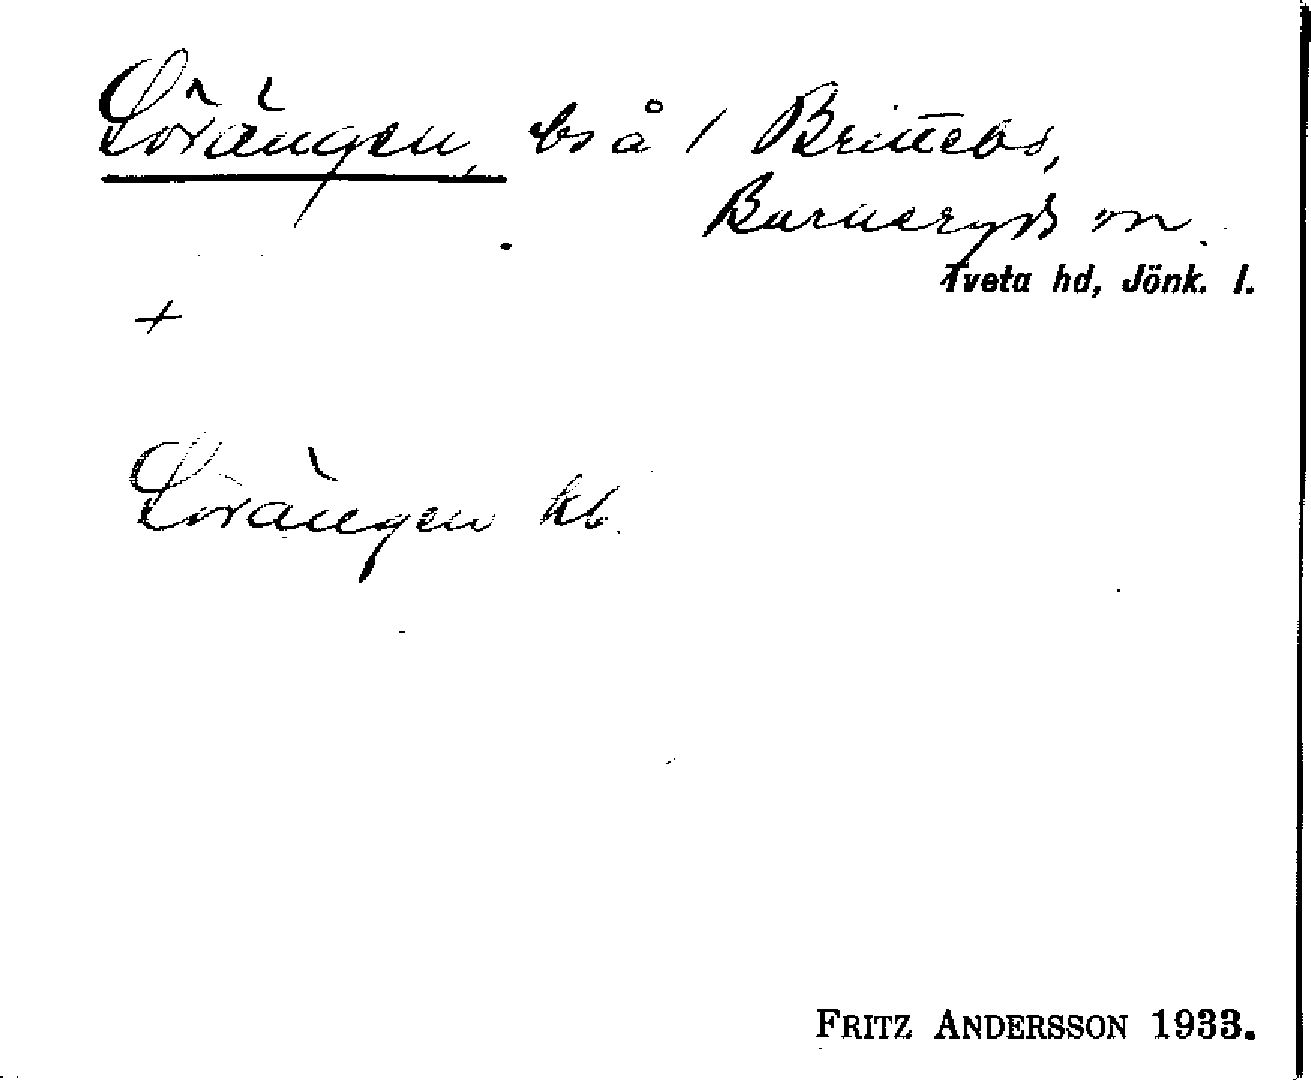 Lövängen, bs å 1 Brittebo,
Barnaryds sn.
Tveta hd, Jönk. l.
+
Lövängen kb.
FRITZ ANDERSSON 1933.